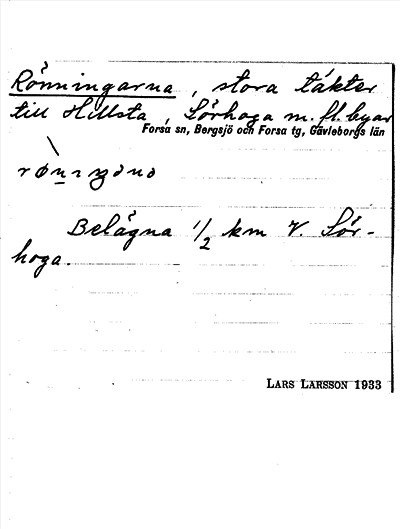 Rönningarna, stora täkter
till Hillsta, Sörhoga m. fl. byar
Forsa sn, Bergsjö och Forsa tg, Gävleborgs län
Belägna 1/2 km V. Sör-
hoga.
LARS LARSSON 1933